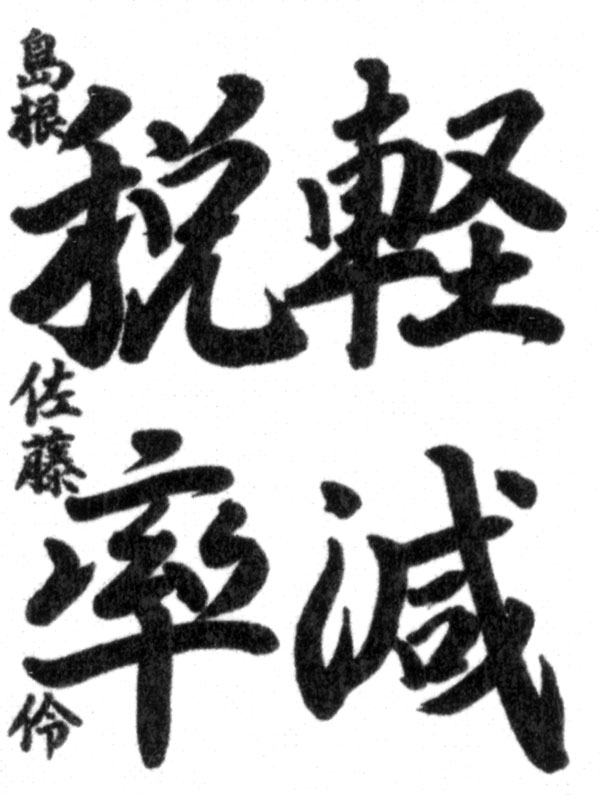 軽減
税率
島根 佐藤 伶